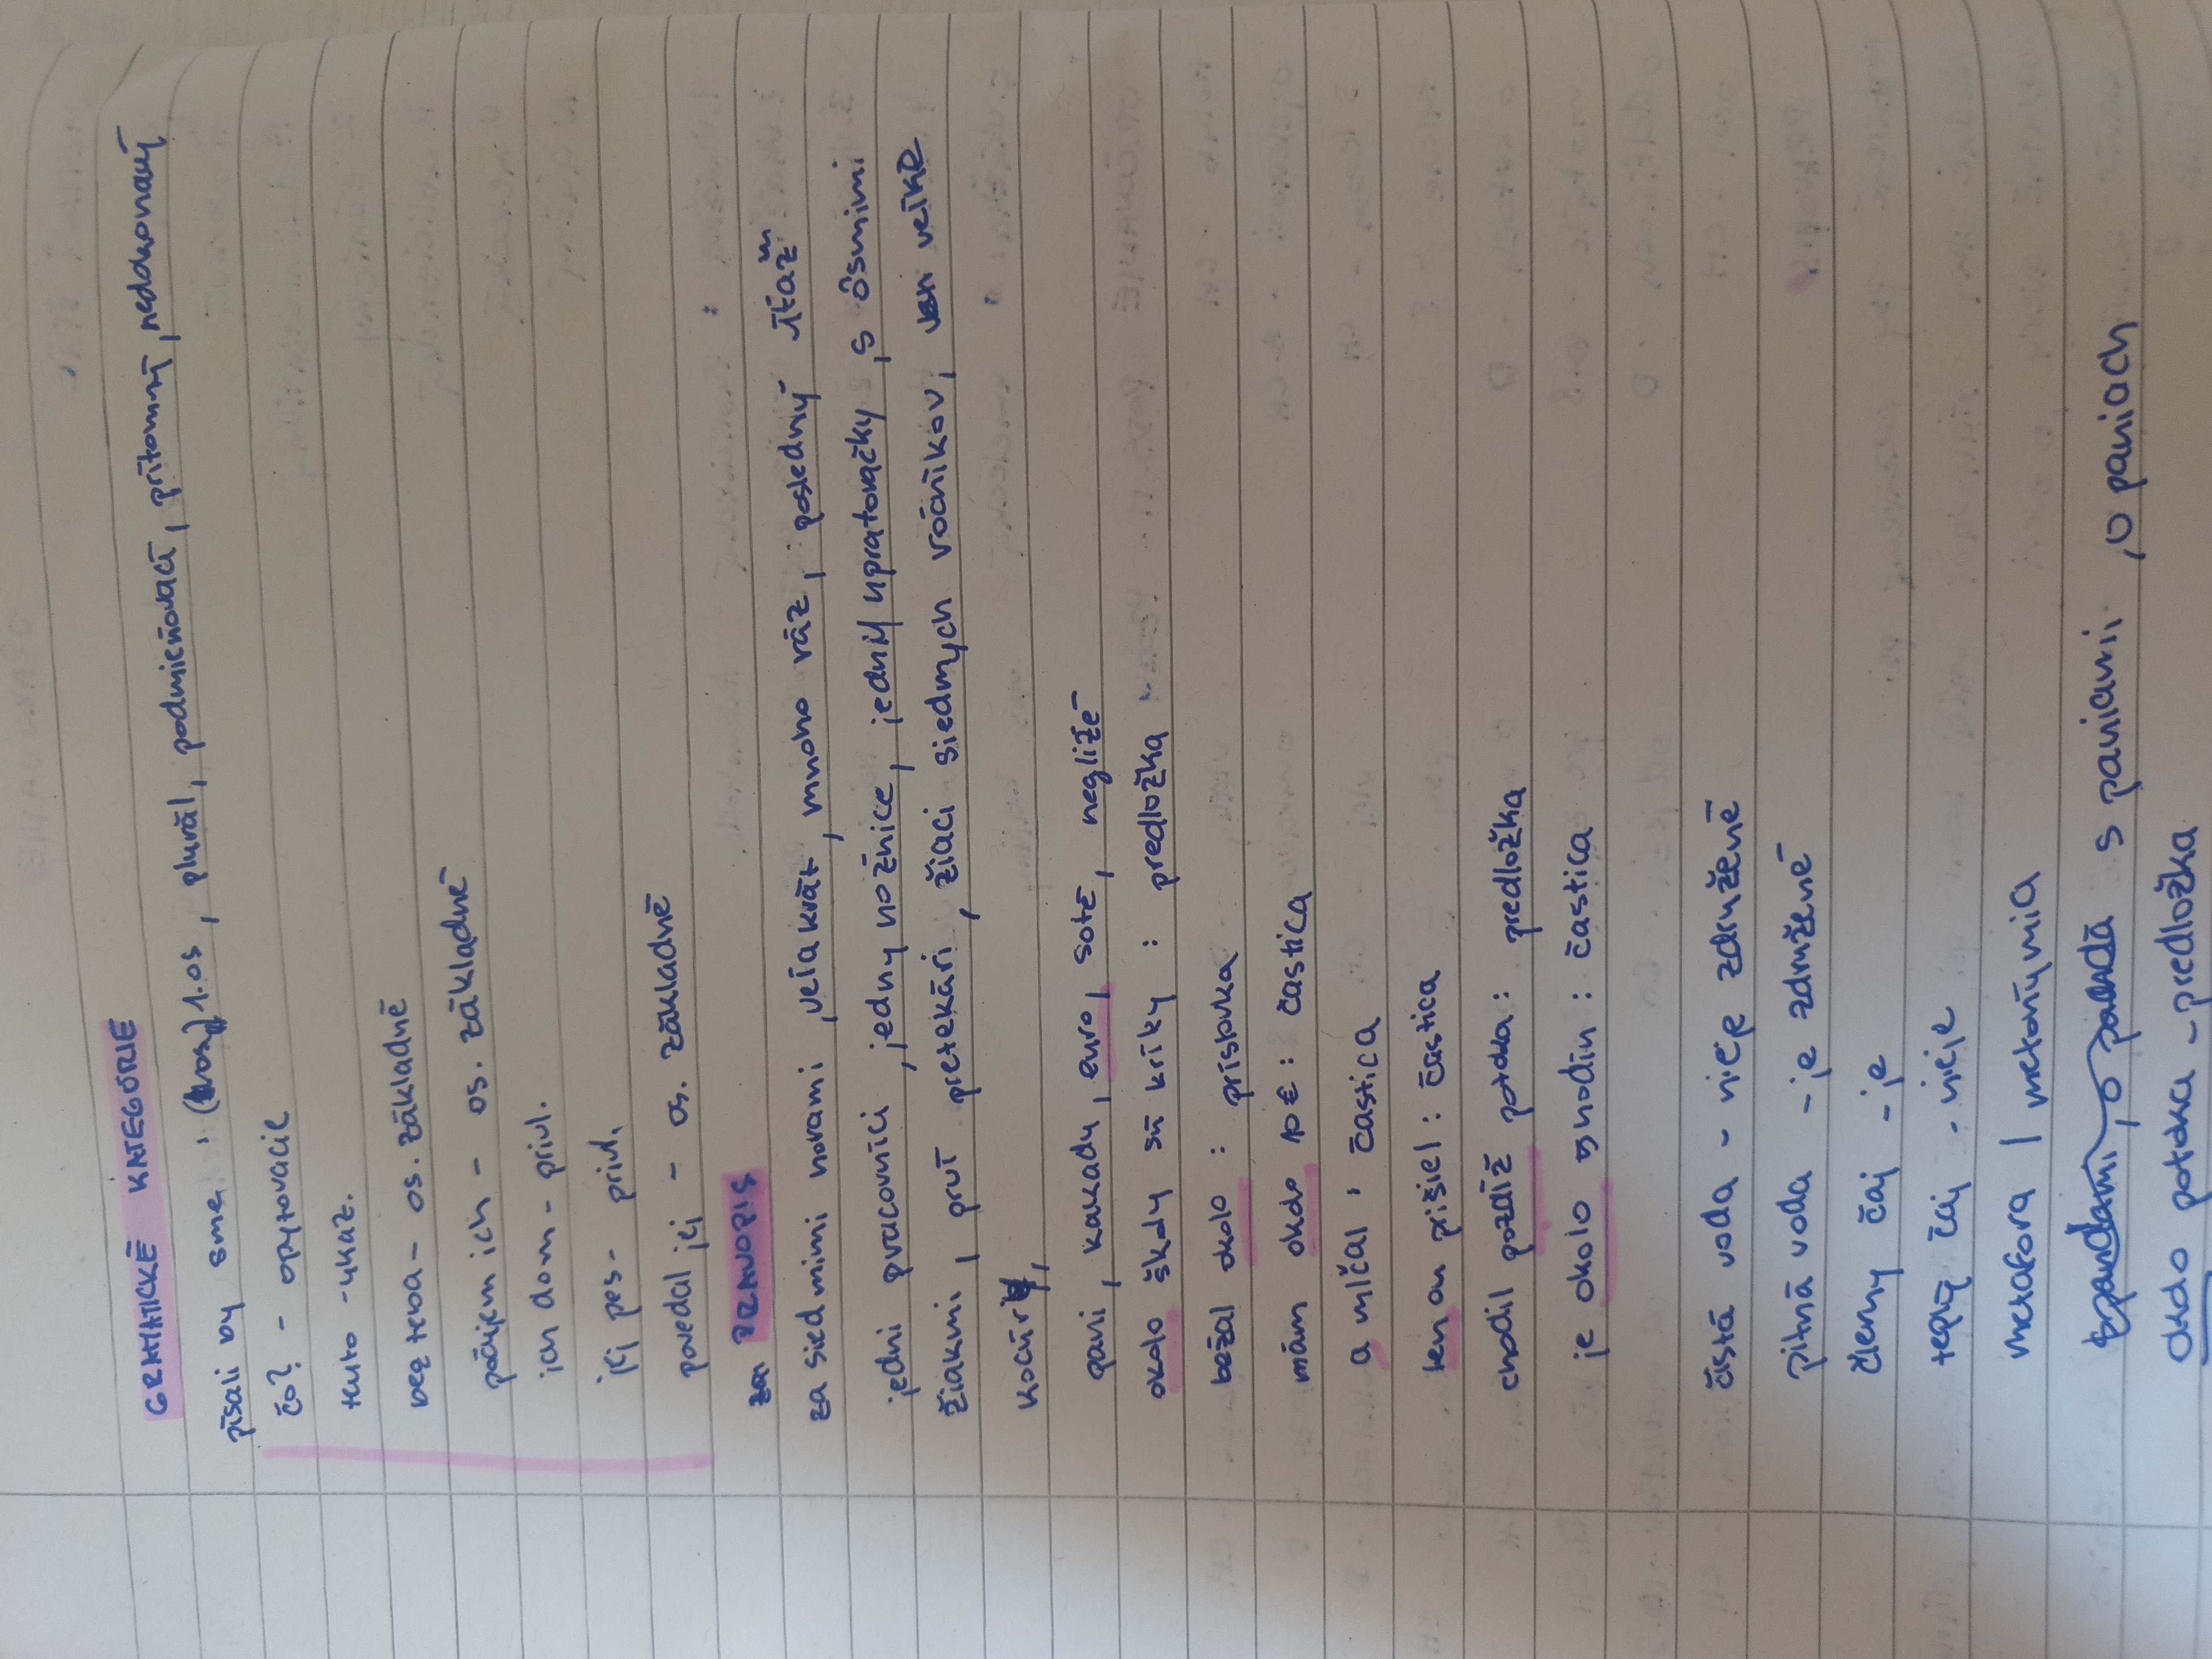 GRAMATICKÉ KATEGÓRIE
písali by sme : 1.os, plurál, podmieňovací, prítomný, nedokonavý
čo? - opytovacie
tento - ukaz.
bez teba - os. základné
počujem ich - os. základné
ich dom - privl.
jej pes - privl.
povedal jej - os. základné
PRAVOPIS
za siedmimi horami, veľakrát, mnoho ráz, posledný víťaz
jedni pracovníci, jedny nožnice, jedny upratovačky, s ôsmimi
žiakmi, prví pretekári, žiaci siedmych ročníkov, veľké
kocúry,
pani, kakadu, euro, soté, negližé
okolo školy sú kríky : predložka
bežal okolo : príslovka
mám okolo 10€ : častica
a mlčal : častica
len on prišiel : častica
chodil pozdĺž potoka : predložka
je okolo 5 hodín : častica
čistá voda - nieje združené
pitná voda - je združené
čierny čaj - je
teplý čaj - nieje
metafora / metonýmia
s paniami, o paniach
okolo potoka - predložka